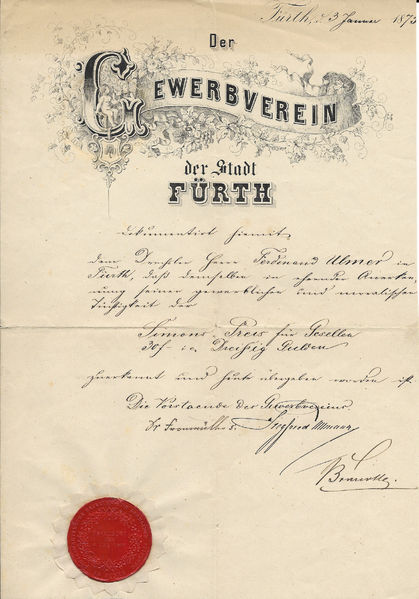 Fürth, d 3 Januar 1873
Der
GEWERBVEREIN
der Stadt
FÜRTH
dokumentirt hiemit
dem Drechsler Herr Ferdinand Ulmer in
Fürth, daß demselben in ehrender Anerken,
nung seiner gewerblichen und moralischen
Tüchtigkeit der
Simons-Preis für Gesellen
30f – ie Dreißig Gulden
zuerkannt und heute übergeben worden ist
Die Vorstaende des Gewerbvereins
Dr Fronmüller s.